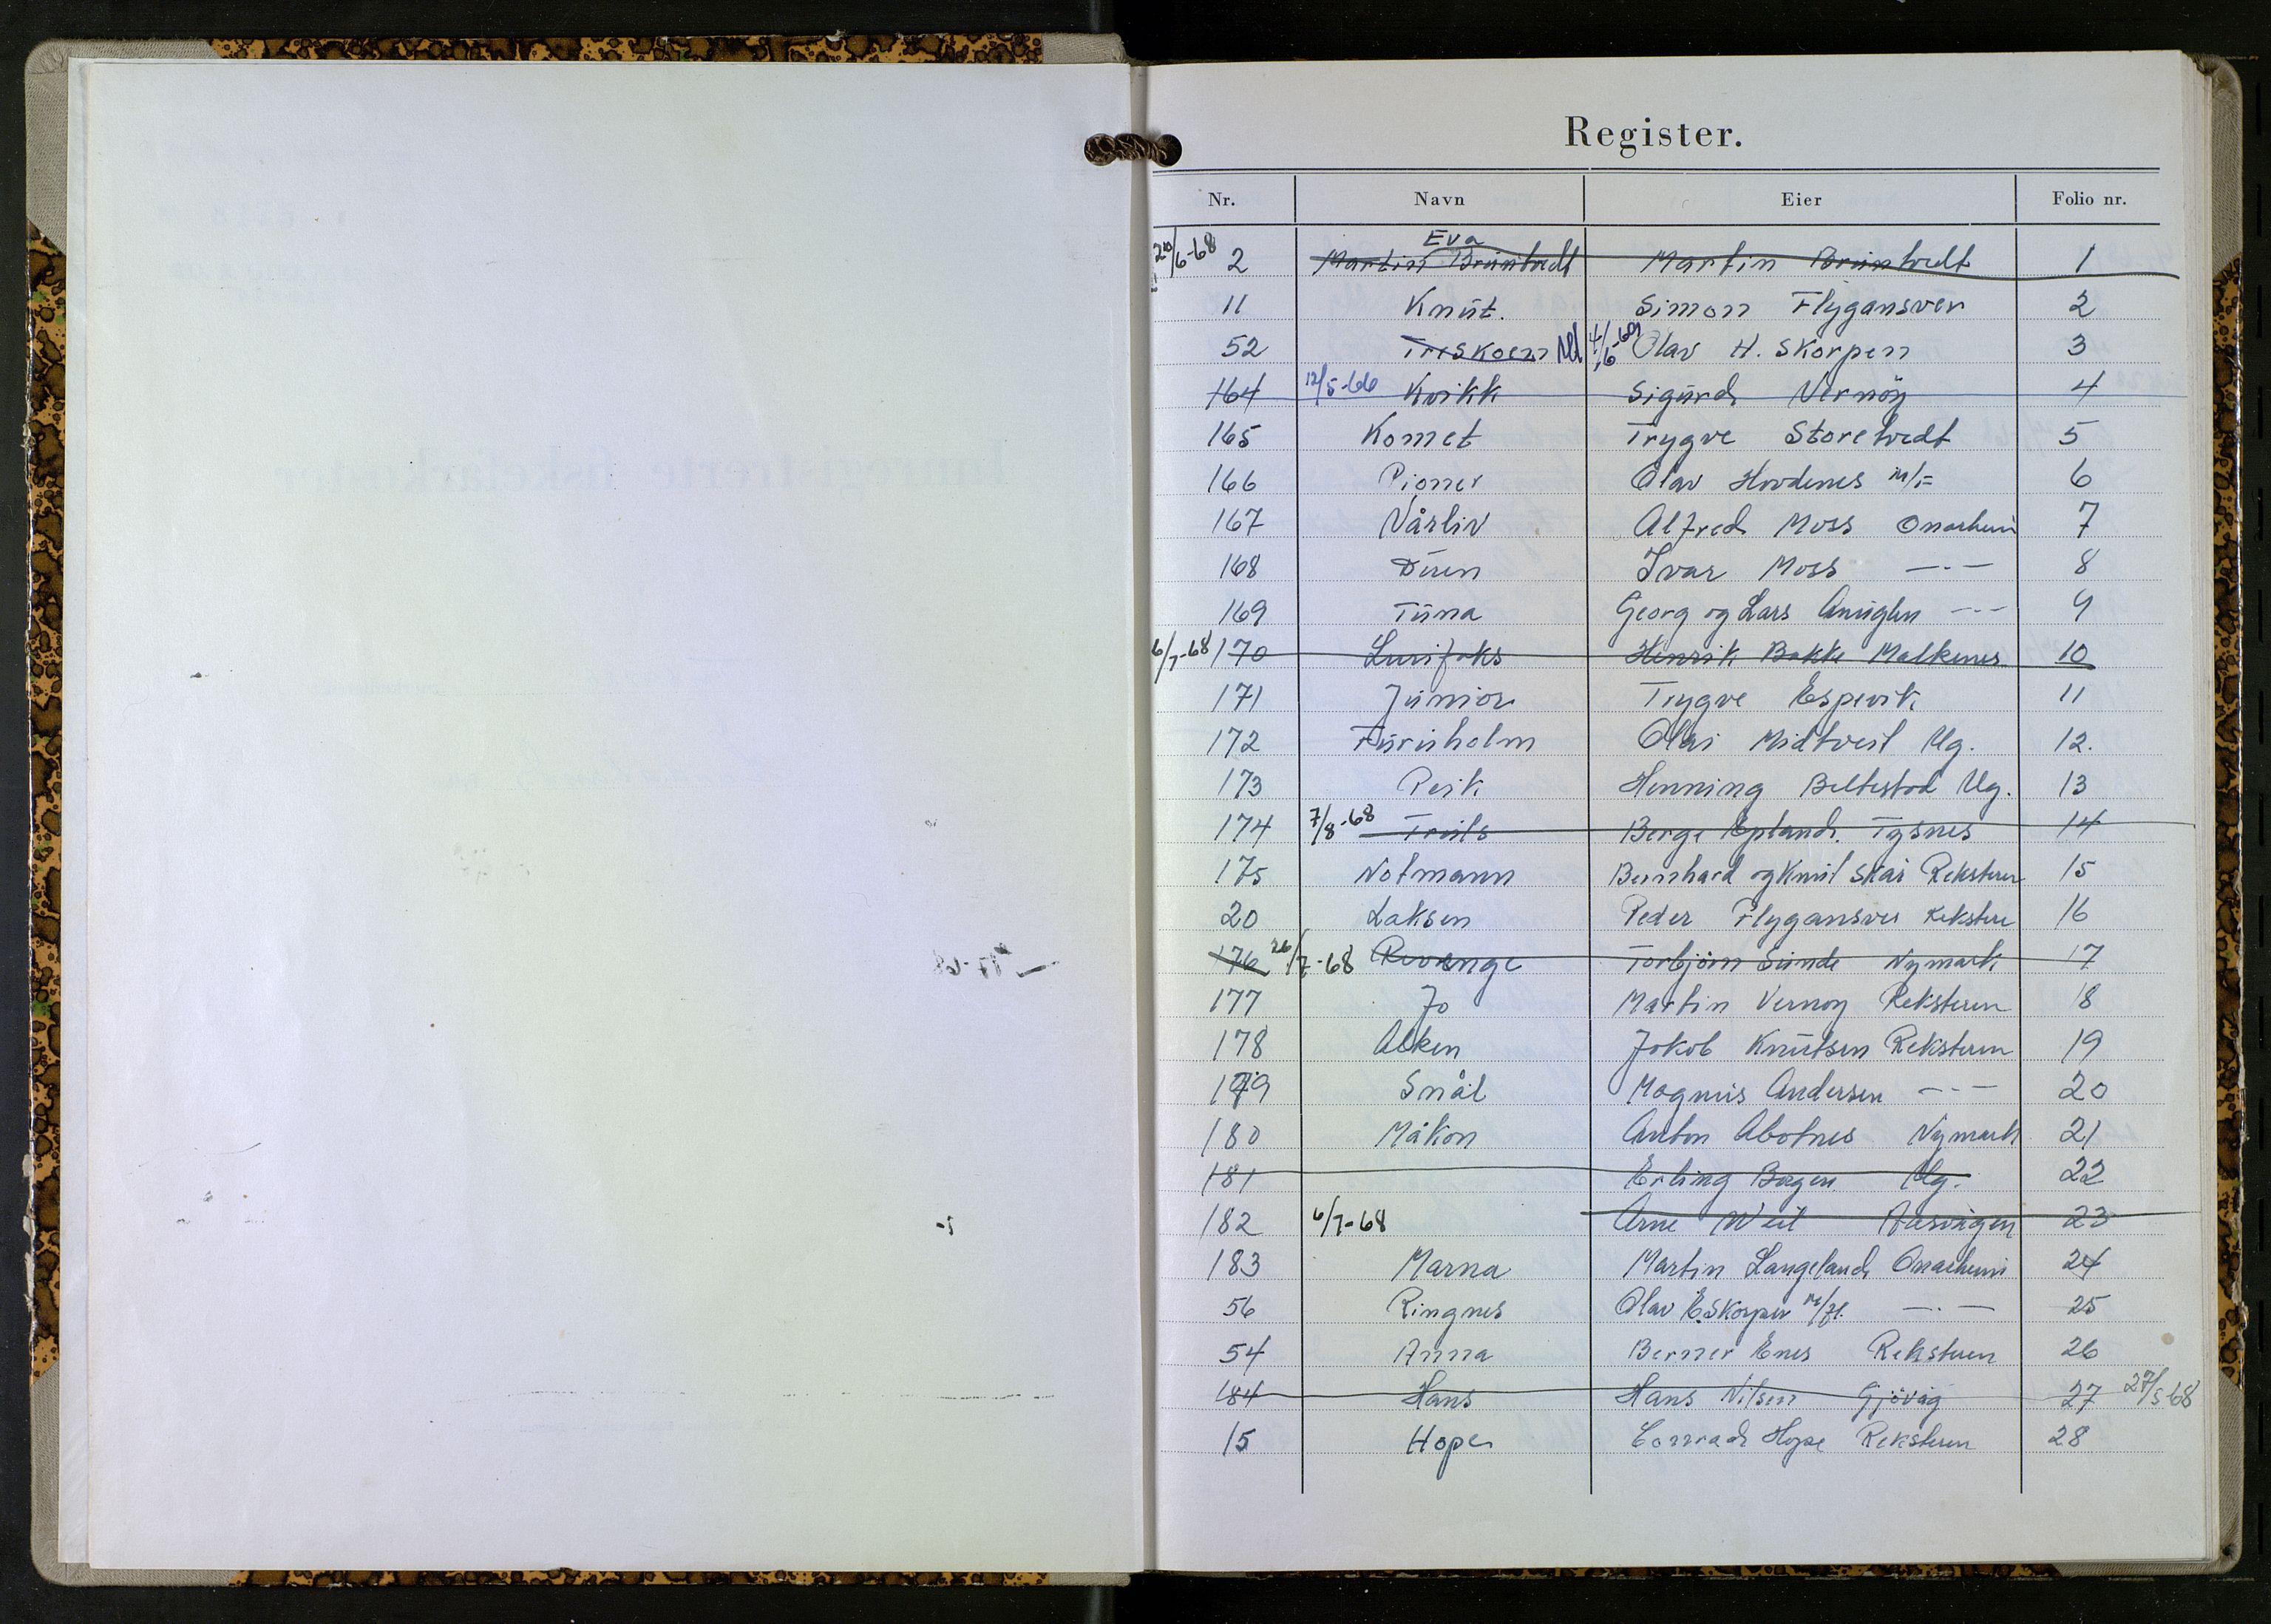 Register.
Nr. Navn Eier Folio nr.
Eva
20/6-68 2 Martin Brüntvedt Martin Brüntvedt 1
11 Knüt. Simon Flygansver 2
52 Triskoen 4/6-69 Olav H. Skorpen 3
164 12/5-66 Kvikk Sigürd Vernöy 4
165 Komet Trygve Storetvedt 5
166 Pioner Olav Hovdenes 6
167 Vårliv Alfred Moss Onarheim 7
168 Ivar Moss —·— 8
169 Tüna Georg og Lars —·— 9
6/7-68 170 Henrik Bakke Malkenes 10
171 Jünior Trygve Espevik 11
172 Füruholm Olai Midtveit Ug. 12.
173 Peik Henning Beltestad Ug. 13
174 7/8-68 Trüls Berge Epland. Tysnes 14
175 Notmann Bernhard og Knüt Skår Reksteren 15
20 Laksen Peder Flygansver Rekstere 16
176 26/7-68 Revenge Torbjörn Sünde Nymark 17
177 Jo Martin Vernøy Reksteren 18
178 Alken Jakob Knütsen Reksteren 19
179 Snål Magnüs Andersen —·— 20
180 Måkon Anton Abotnes Nymark 21
181 Erling Bagen Ug. 22
182 6/7-68 Arne 23
183 Marna Martin Langeland Onarheim 24
56 Ringnes Olav E. Skorpen m/fl. —·— 25
54 Anna Berner Enes Reksteren 26
184 Hans Hans Nilsen Gjövåg 27 27/5-68
15 Hope Conrad Hope Reksteren 28